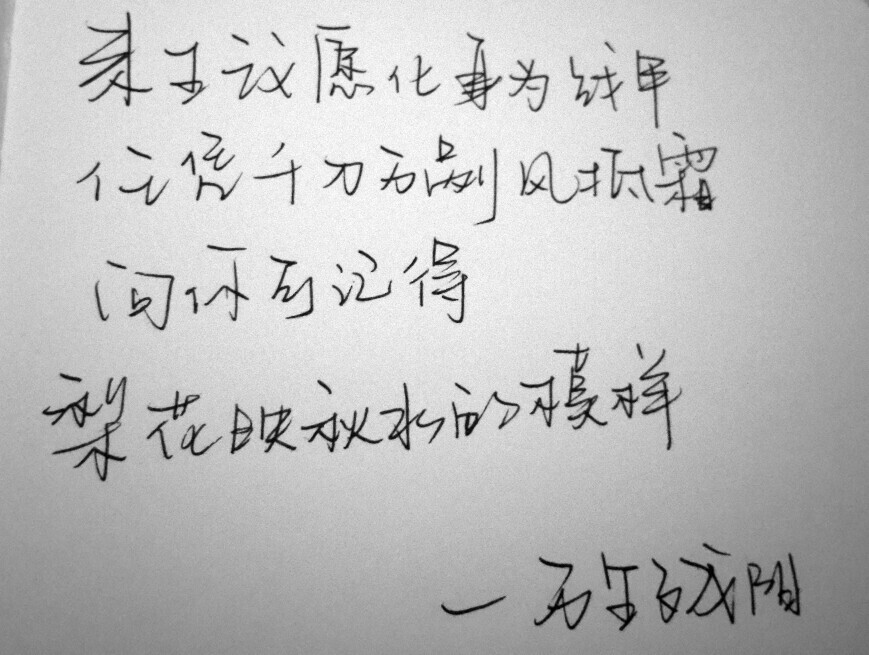 来生议愿化身为战甲
任凭千刀万剐风抵霜
问你可记得
梨花映秋水的模样
—残阳